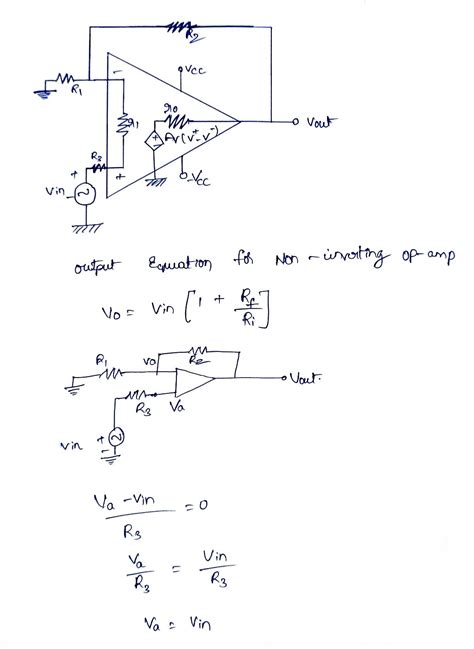 R2
R1
- Vcc
r0
r1
+ - AV(v+-v-)
Vout
R3
+
Vin
+
-
-Vcc
output Equation for Non-inverting op-amp
Vo = Vin [1 + Rf/Ri]
R1 Vo R2
Vout.
R3 Va
Vin + -
Va - Vin / R3 = 0
Va/R3 = Vin/R3
Va = Vin